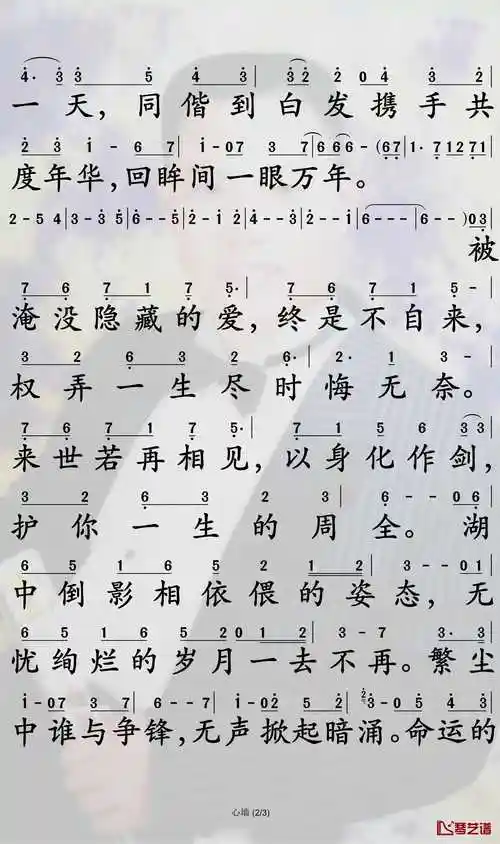 4· 3 3 5 4 3 | 3 3 2 2 0 4 3 2
一天，同偕到白发携手共
2 3 i - 6 7 | i - 0 7 3 7 | 6 6 6 - (6 7 | 1· 7 1 2 7 1 |
度年华，回眸间一眼万年。
2 - 5 4 | 3 - 3 5 | 6 - - 5 | i - 2 i 2 | - - 3 - | 2 - - i | 6 - - | 6 - - ) 0 3 |
被
7 6 7 1 7 5· | 7 6 7 1 5 - |
淹没隐藏的爱，终是不自来，
3 2 6 3 2 6· | 2· 1 3 - - |
权弄一生尽时悔无奈。
7 6 7 1 7 5· | 7 1 5 6 3 3 |
来世若再相见，以身化作剑，
3 2 6 3 2 3 | 6 - - 0 6 |
护你一生的周全。湖
6 5 1 6 5 2 1 2 | 3 - - 0 1 |
中倒影相依偎的姿态，无
6 5 1 6 5 2 0 1 2 | 3 - 7 | 3· 3 |
忧绚烂的岁月一去不再。繁尘
i - 0 7 3 7 | 6 - - 7 | i - 0 2 5 2 | 3 - 0 5 4 3 |
中谁与争锋，无声掀起暗涌。命运的
心墙 (2/3)
琴艺谱